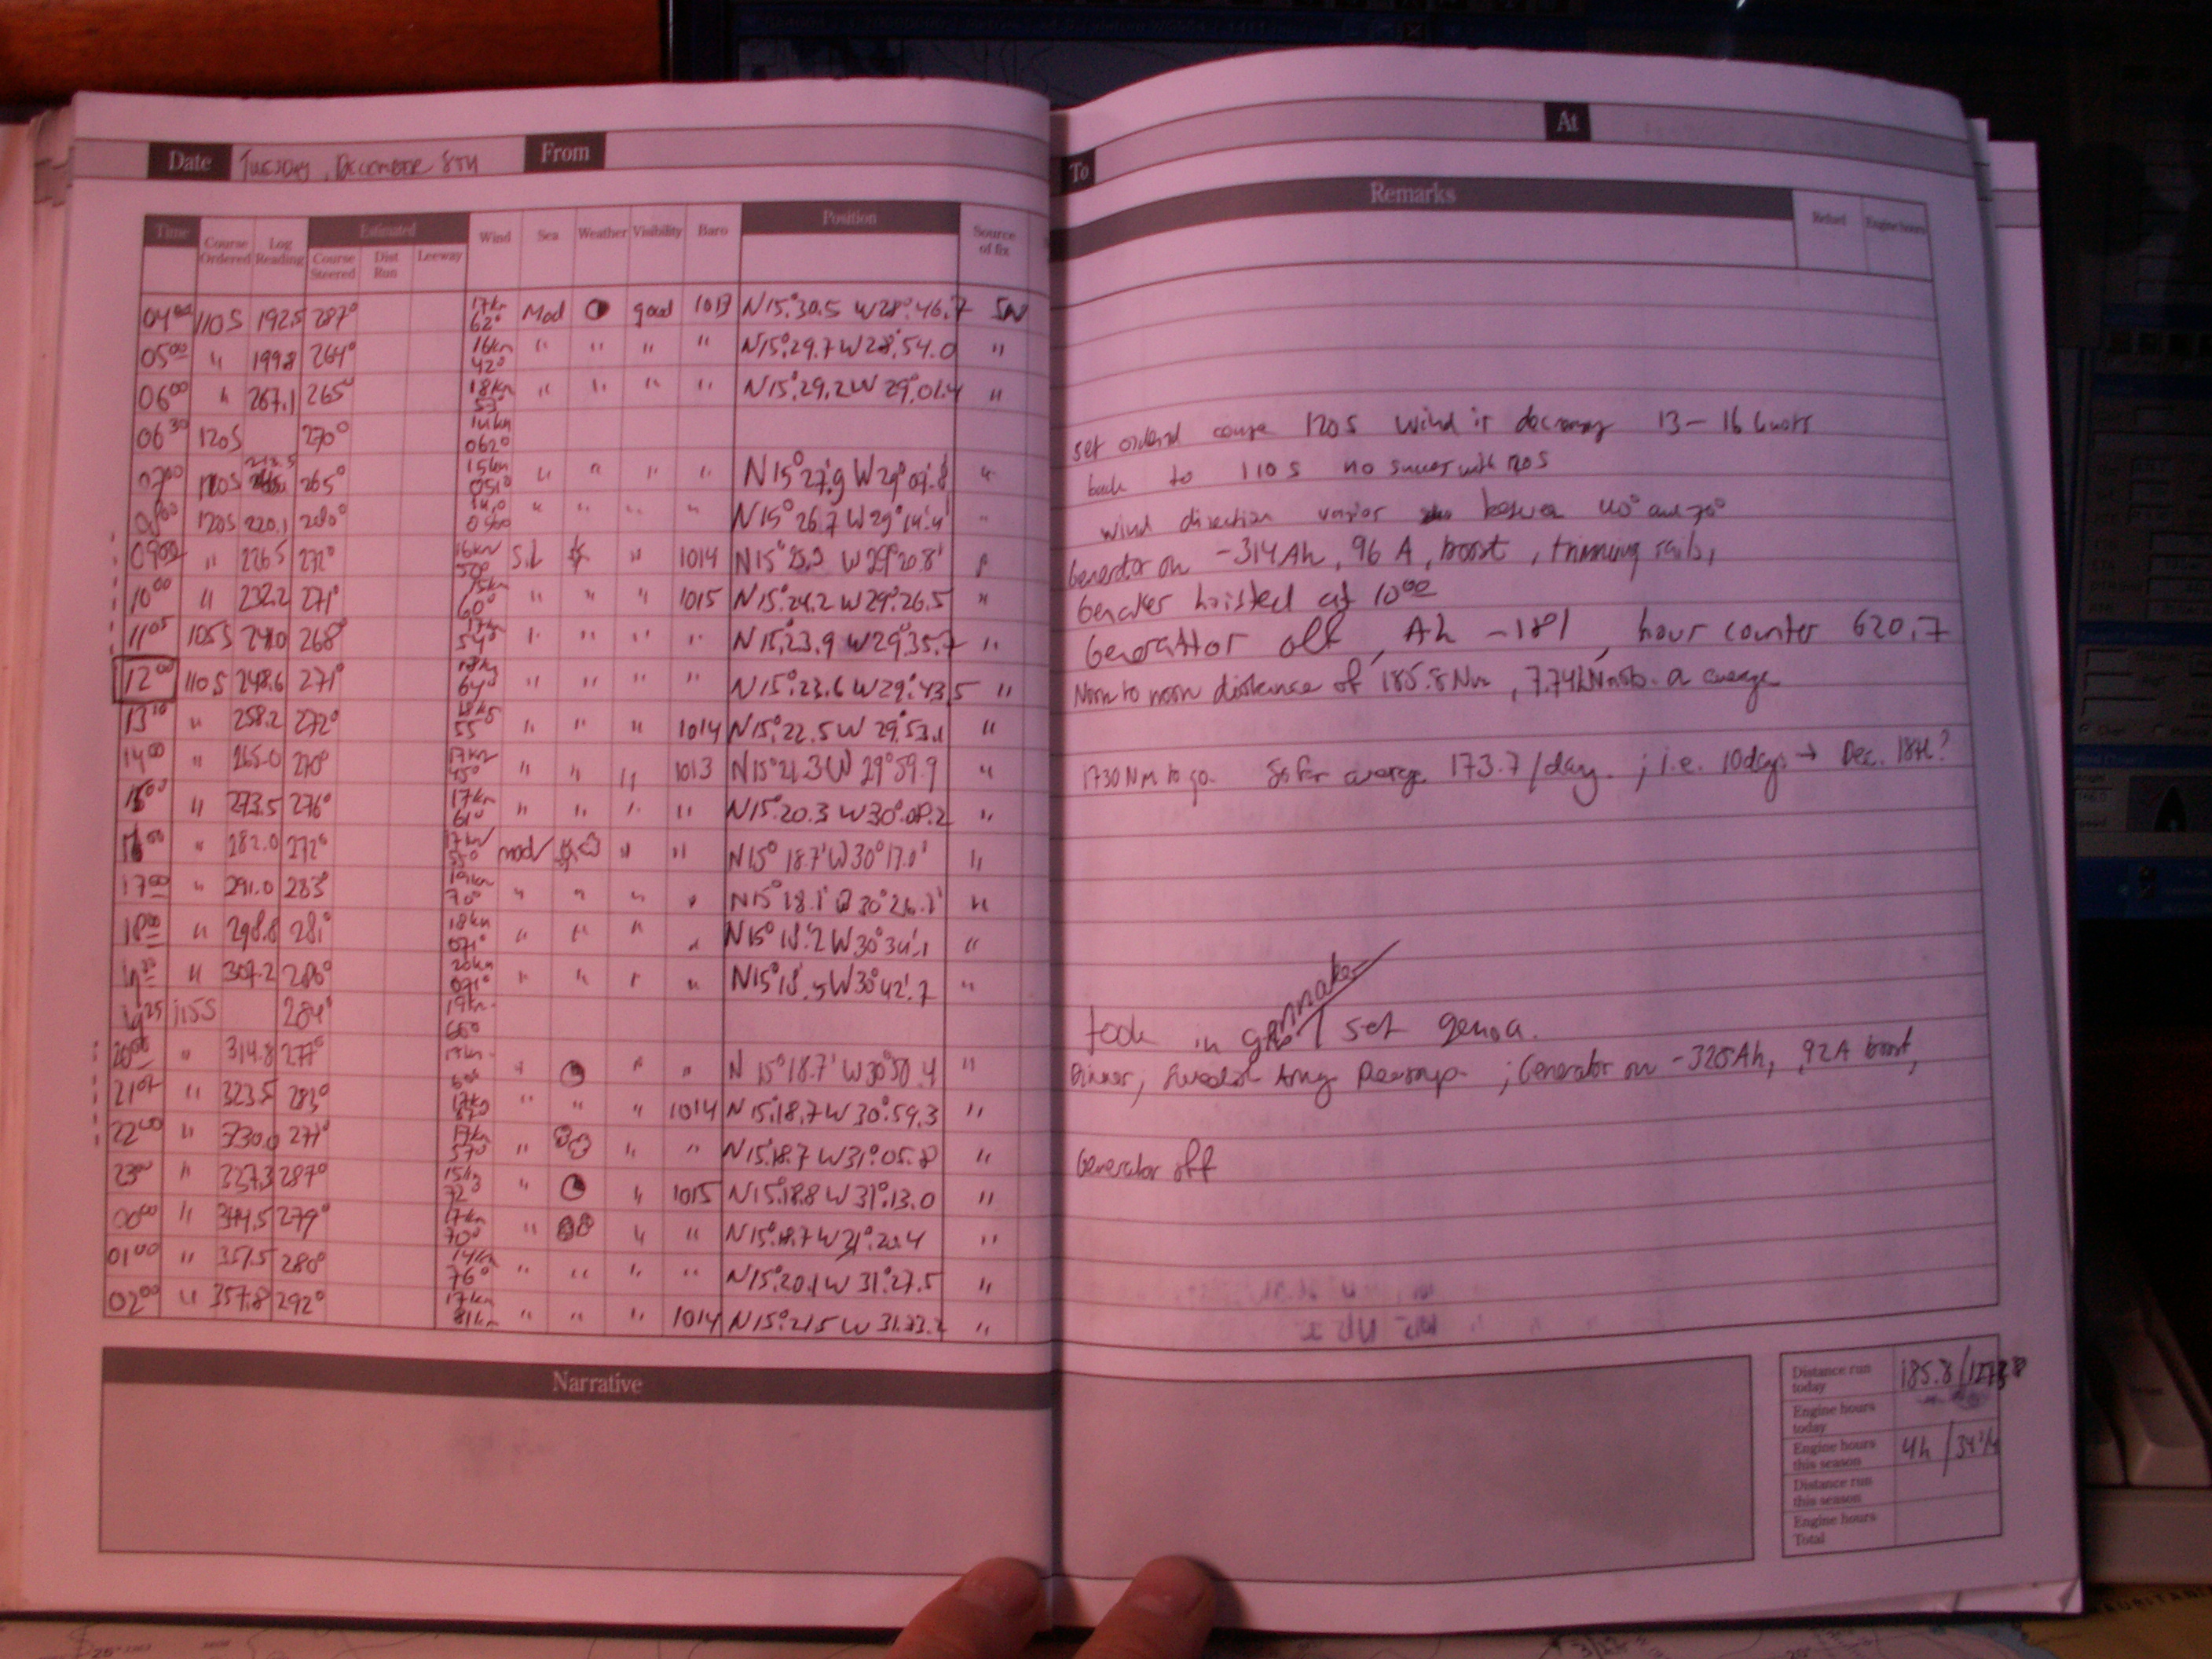 At
Date TUESDAY, DECEMBER 8TH From
To
Remarks
Refuel Engine hours
Time Course Ordered Log Reading Estimated Course Steered Dist Run Leeway Wind Sea Weather Visibility Baro Position Source of fix
04 00 110S 192.5 287° 17kn 62° Mod good 1013 N15°.30.5 W28°.46.7
05 00 " 199.8 264° 16kn 42° " " " " N15°.29.7 W28°.54.0 "
06 00 " 267.1 265° 18kn 53° " " " " N15°.29.2 W29°.01.4 "
06 30 120S 270° 14kn 062° set ordered course 120S wind is 13 - 16 knots
07 00 265° 15kn 051° " " " " N15°27.9 W29° " back to 110S no with 120S
120S 220.1 N15°26.7 W29°14.4' " wind direction between 40° and 70°
09 00 " 226.5 272° 16kn 50° " 1014 N15° W29°20.8' Generator on -314Ah, 96 A, boost, trimming sails,
10 00 " 232.2 271° 15kn 60° " " " 1015 N15°.24.2 W29°.26.5 " hoisted at 10 00
11 05 105S 268° 17kn 54° " " " N15°.23.9 W29°35.7 " Generattor off, Ah -181, hour counter 620,7
12 00 110S 248.6 271° 64° " " " " N15°.23.6 W29°.43.5 " Noon to noon distance of 185.8Nm, average
13 10 " 258.2 272° 55° " " " 1014 N15°.22.5 W 29°.53.1 "
14 00 " 265.0 270° 17kn 45° " " " 1013 N15°21.3 W 29°59.9 " 1730NM to go. So far average 173.7/day. ; i.e. 10days → Dec. 18th?
" 273.5 276° 17kn 61° " " " " N15°.20.3 W30°.08.2 "
" 282.0 272° 17kn mod " " N15° 18.7' W30°17.0' "
17 00 " 291.0 283° 19kn 70° " " " " N15°18.1' 30°26.1' "
18 00 " 298.8 281° 18kn 071° " " " " N15° 18.2 W30°34.1 "
" 307.2 280° 20kn " " " " N15°18'.5 W30°42'.7 "
19 25 115S 284° 19kn 60° took in gennaker set genoa.
20 00 " 314.8 277° 17kn " " " N 15°18.7' W30°50.4 " Dinner, Swedish Army ; Generator on -328Ah, 92A boost,
21 07 " 323.5 283° 17kn " " " 1014 N15°.18.7 W30°.59.3 "
22 00 " 330.0 271° 17kn 57° " " " N15°.18.7 W31°.05.8 " Generator off
23 00 " 337.3 287° 15kn 72° " " 1015 N15°.18.8 W31°.13.0 "
00 00 " 344.5 279° 17kn 70° " " " N15°.18.7 W31°.20.4 "
01 00 " 351.5 280° 14kn 76° " " " " N15°.20.1 W 31°.27.5 "
02 00 " 357.8 292° 17kn 81kn " " " 1014 N15°.21.5 W 31.33.2 "
Narrative
Distance run today 185.8/
Engine hours today
Engine hours this season 4h /34
Distance run this season
Engine hours Total